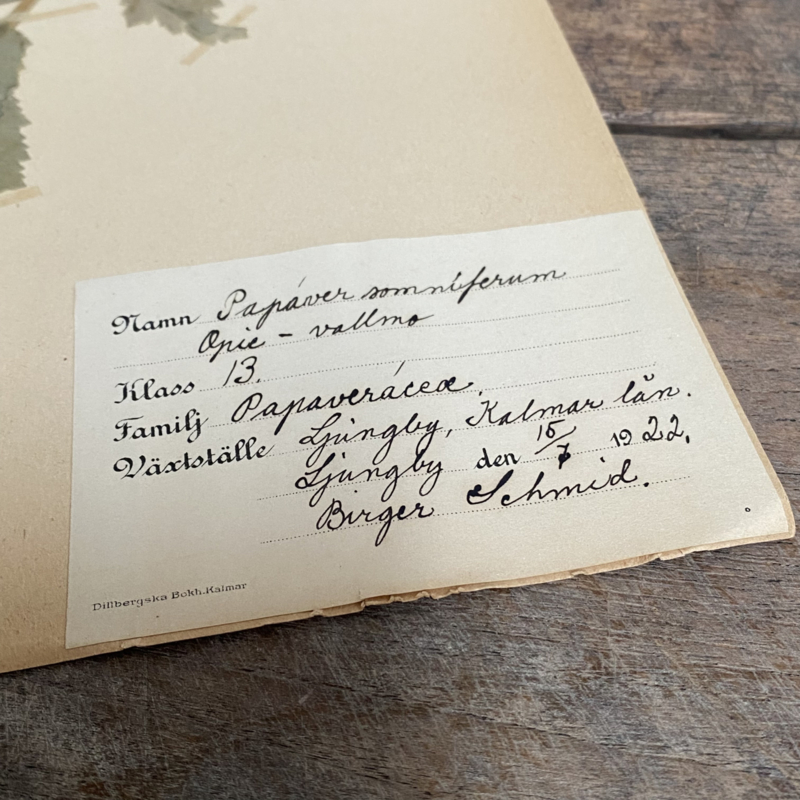 Namn Papáver somníferum
Opie - vallmo
Klass 13.
Familj Papaveráceæ.
Växtställe Ljungby, Kalmar län.
Ljungby den 15/7 1922.
Birger Schmid.
Dillbergska Bokh. Kalmar